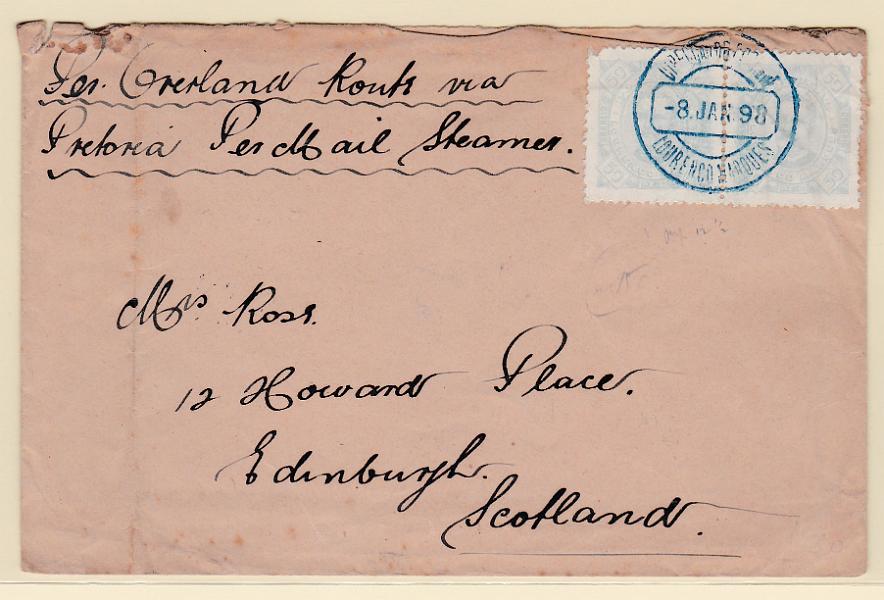 Per. Overland Route via
Pretoria Per Mail Steamer.
-8.JAN.98
LOURENÇO MARQUES
50 50
50 50
Mrs Ross.
12 Howard Place.
Edinburgh.
Scotland.